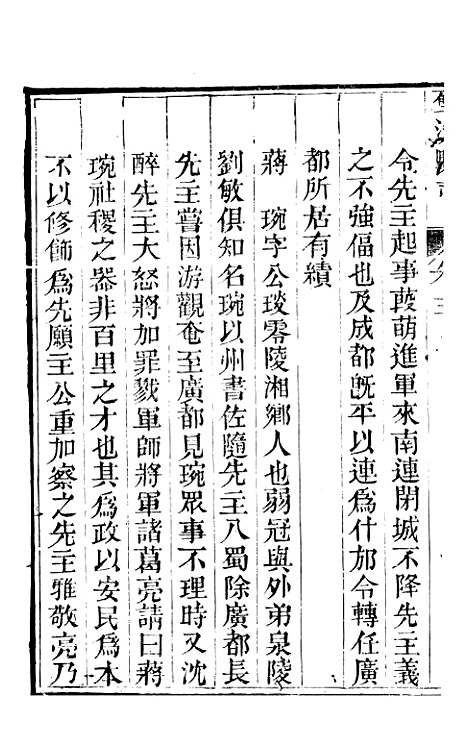 令先主起事葭萌進軍來南連閉城不降先主義
之不強偪也及成都既平以連爲什邡令轉任廣
都所居有績
蔣　琬字公琰零陵湘鄉人也弱冠與外弟泉陵
劉敏俱知名琬以州書佐隨先主入蜀除廣都長
先主嘗因游觀奄至廣都見琬眾事不理時又沈
醉先主大怒將加罪戮軍師將軍諸葛亮請曰蔣
琬社稷之器非百里之才也其爲政以安民爲本
不以修飾爲先願主公重加察之先主雅敬亮乃